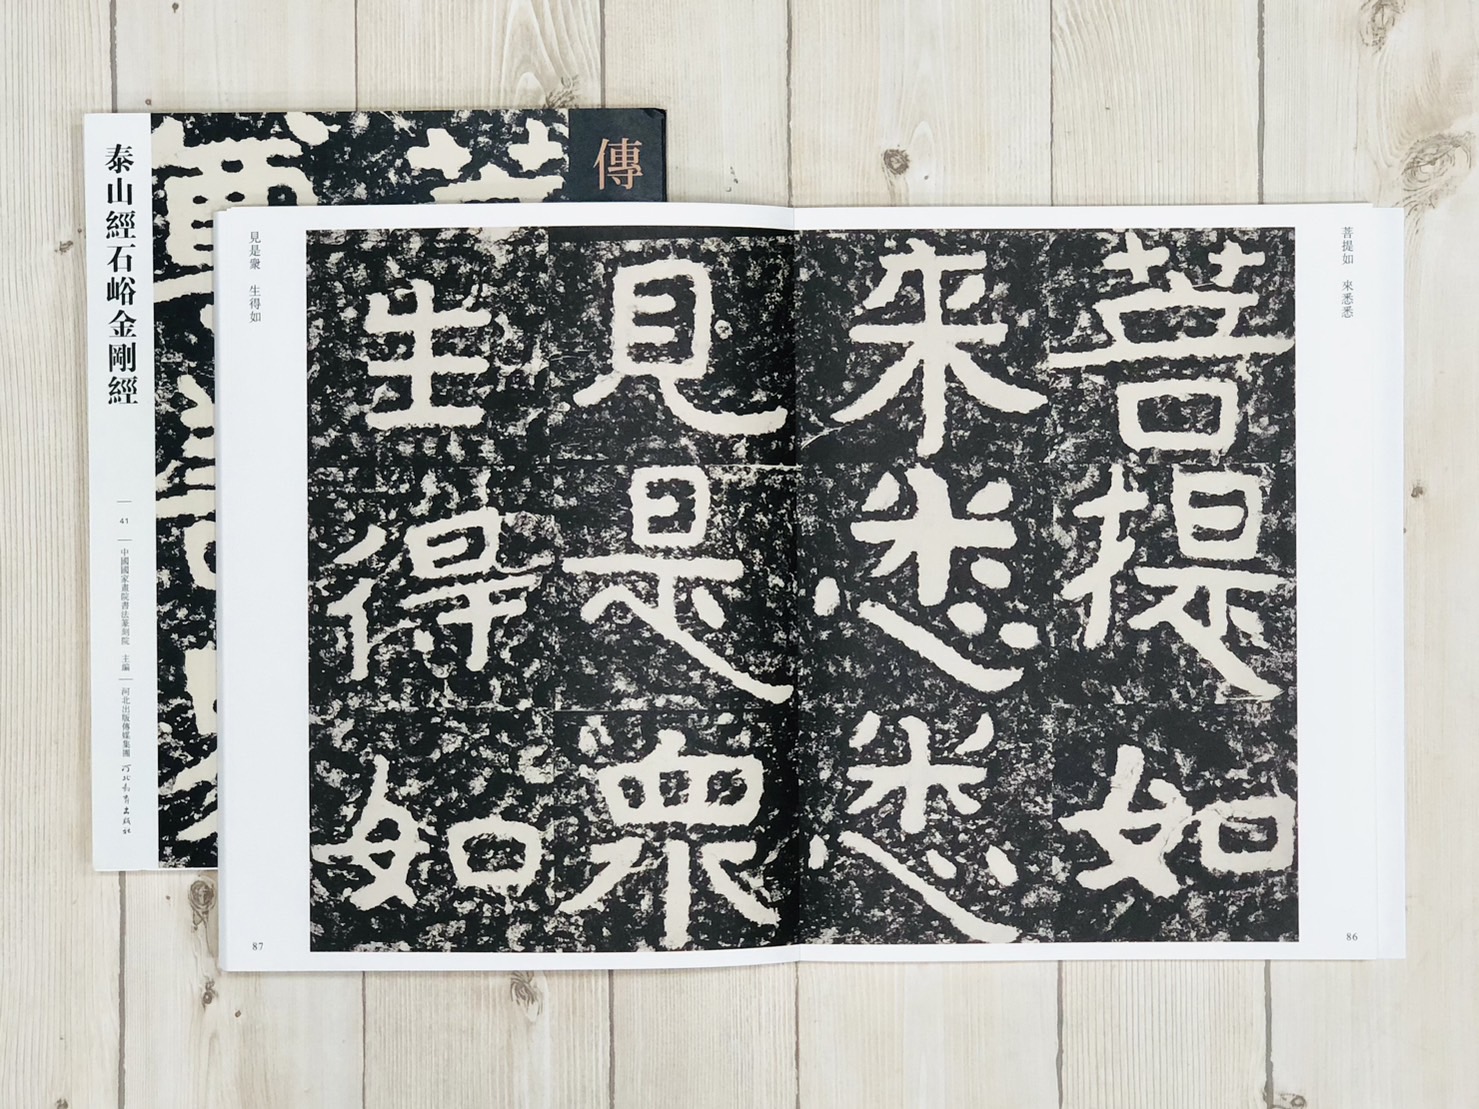 傳
泰山經石峪金剛經
41
中國國家畫院書法篆刻院 主編
河北出版傳媒集團
河北教育出版社
菩提如 來悉悉
菩提如
來悉悉
86
見是衆
生得如
見是衆 生得如
87